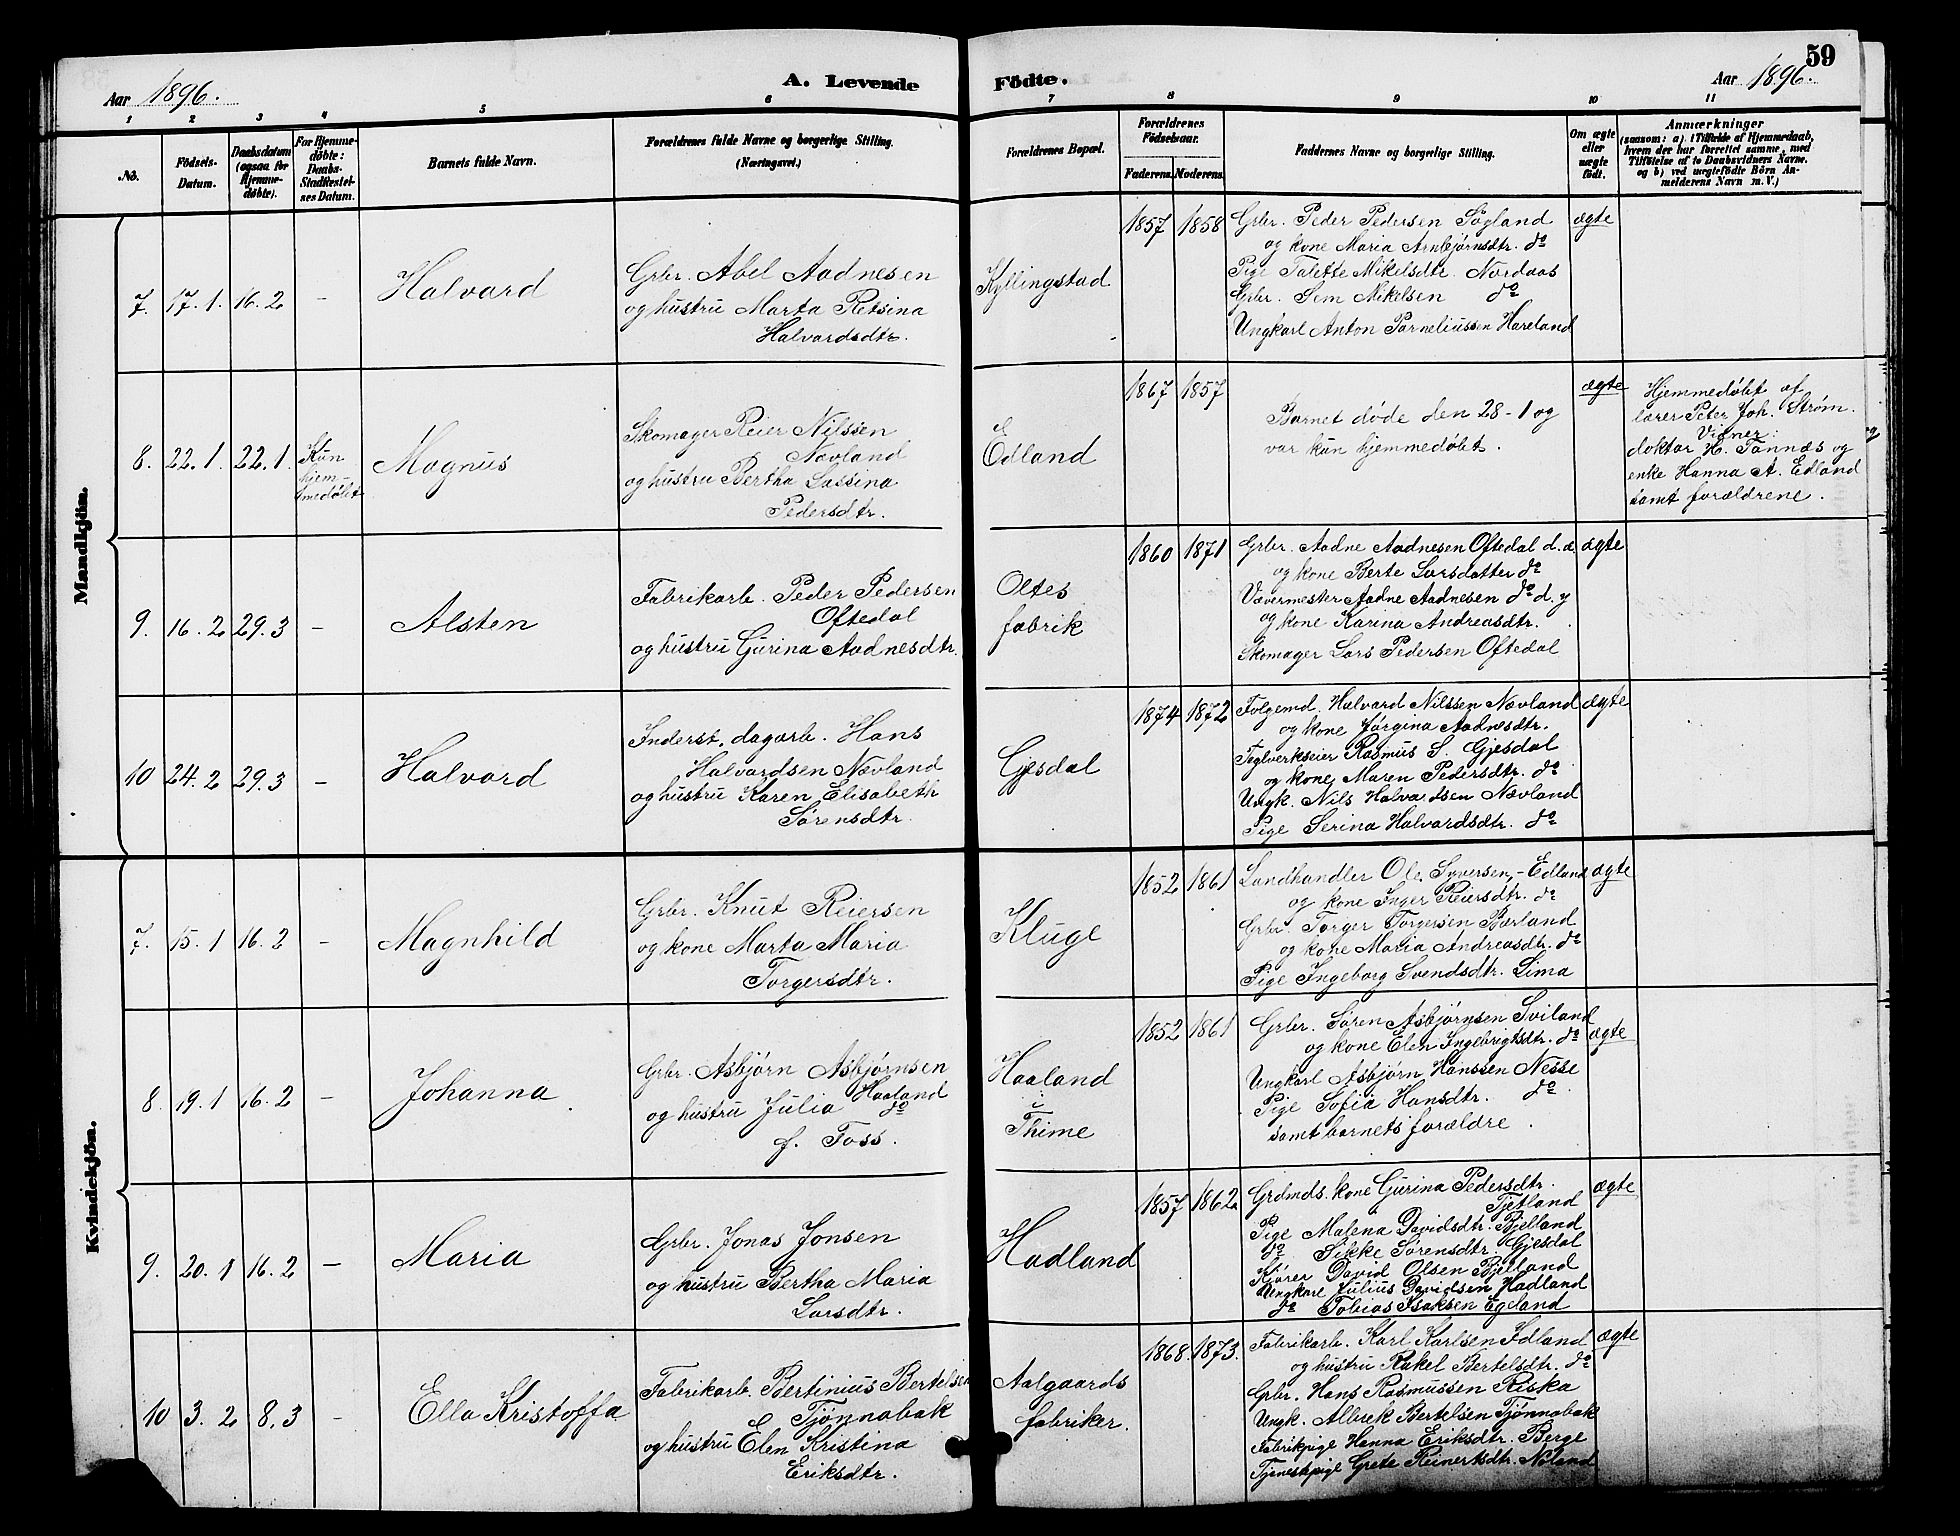 59
Aar 1896.
A. Levende
Födte.
Aar 1896.
1 2 3 4 5 6 7 8 9 10 11
No.
Födsels-Datum.
Daabsdatum (ogsaa for Hjemme-döbte).
For Hjemme-döbte: Daabs-Stadfæstel-ses Datum.
Barnets fulde Navn.
Forældrenes fulde Navne og borgerlige Stilling.
(Næringsvei.)
Forældrenes Bopæl.
Forældrenes Födselsaar.
Faderens. Moderens.
Faddernes Navne og borgerlige Stilling.
Om ægte eller uægte födt.
Anmærkninger
(saasom: a) i Tilfælde af Hjemmedaab,
hvem der har forrettet samme, med
Tilföielse af to Daabsvidners Navne.
og b) ved uægtefödte Börn An-
melderens Navn m. V.)
Mandkjön.
7. 17. 1. 16. 2 – Halvard
Grbr. Abel Aadnesen
og hustru Marta Retsina
Halvardsdtr.
Kyllingstad
1857 1858
Grbr. Peder Pedersen Sogland
og kone Maria Arnbjørnsdtr. do
Pige Talette Mikelsdtr. Nordaas
Grbr. Sem Mikelsen do
Ungkarl Anton Parneliussen Hareland
ægte
8. 22. 1. 22. 1.
Kun
hjem-
medøbt
Magnus
Skomager Reier Nilssen
Nævland
og hustru Bertha Lassina
Pedersdtr.
Edland
1867 1857
Barnet døde den 28-1 og
var kun hjemmedøbt.
ægte
Hjemmedøbt af
lærer Peter Joh. Strøm.
Vidner:
doktor H. Tannæs og
enke Hanna A. Edland
samt forældrene.
9. 16. 2 29. 3 – Alsten
Fabrikarb. Peder Pedersen
Oftedal
og hustru Gurina Aadnesdtr.
Oltes
fabrik
1860 1871
Grbr. Aadne Aadnesen Oftedal d. æ
og kone Berte Larsdatter do
Vævermester Aadne Aadnesen do d. y
og kone Karina Andreasdtr.
Skomager Lars Pedersen Oftedal
ægte
10 24. 2 29. 3 – Halvard
Inderst, dagarb. Hans
Halvardsen Nævland
og hustru Karen Elisabeth
Sørensdtr.
Gjesdal
1874 1872
Følgemd. Halvard Nilssen Nævland
og kone Jørgina Aadnesdtr.
Teglverkseier Rasmus S. Gjesdal
og kone Maren Pedersdtr. do
Ungk. Nils Halvardsen Nævland
Pige Serina Halvardsdtr. do
ægte
Kvindekjön.
7. 15. 1 16. 2 – Magnhild
Grbr. Knut Reiersen
og kone Marta Maria
Torgersdtr.
Kluge
1852 1861
Landhandler Ole Syversen, - Edland
og kone Inger Reiersdtr. do
Grbr. Torger Torgersen Bærland
og kone Maria Andreasdtr. do
Pige Ingeborg Svendsdtr. Lima
ægte
8. 19. 1 16. 2 – Johanna
Grbr. Asbjørn Asbjørnsen
Haaland
og hustru Julia do
f. Foss.
Haaland
i
Thime
1852 1861
Grbr. Søren Asbjørnsen Sviland
og kone Elen Ingebrigtsdtr. do
Ungkarl Asbjørn Hanssen Nesse
Pige Sofia Hansdtr. do
samt barnets forældre.
ægte
9. 20. 1 16. 2 – Maria
Grbr. Jonas Jonsen
og hustru Bertha Maria
Larsdtr.
Hadland
1857 1862
Grdmds. kone Gurina Pedersdtr.
Tjetland
Pige Malena Davidsdtr. Bjelland
do Sikke Sørensdtr. Gjesdal
Kjører David Olsen Bjelland
Ungkarl Julius Davidsen Hadland
do Tobias Isaksen Egeland
ægte
10 3. 2 8. 3 – Ella Kristoffa
Fabrikarb. Bertinius Bertelsen
Tjønnabak
og hustru Elen Kristina
Eriksdtr.
Aalgaards
fabriker.
1868. 1873.
Fabrikarb. Karl Karlsen Edland
og hustru Rakel Bertelsdtr. do
Grbr. Hans Rasmussen Riska
Ungk. Albrek Bertelsen Tjønnabak
Fabrikpige Hanna Eriksdtr. Berge
Tjenestepige Grete Reinertsdtr. Noland
ægte